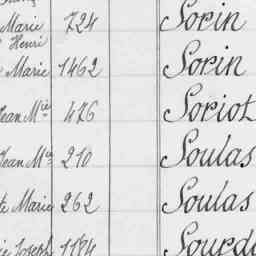 Marie 724 Sorin
Henri
Marie 1462 Sorin
Jean Mie 476 Soriot
Jean Mie 210 Soulas
Marie 262 Soulas
Joseph 1184